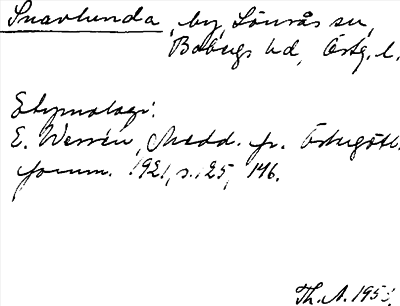 Snavlunda, by, Lönsås sn,
Bobergs hd, Östg. l.
Etymologi:
E. Wessén, Medd. fr. Östergötl.
fornm. 1921, s. 125, 146.
Th. A. 195